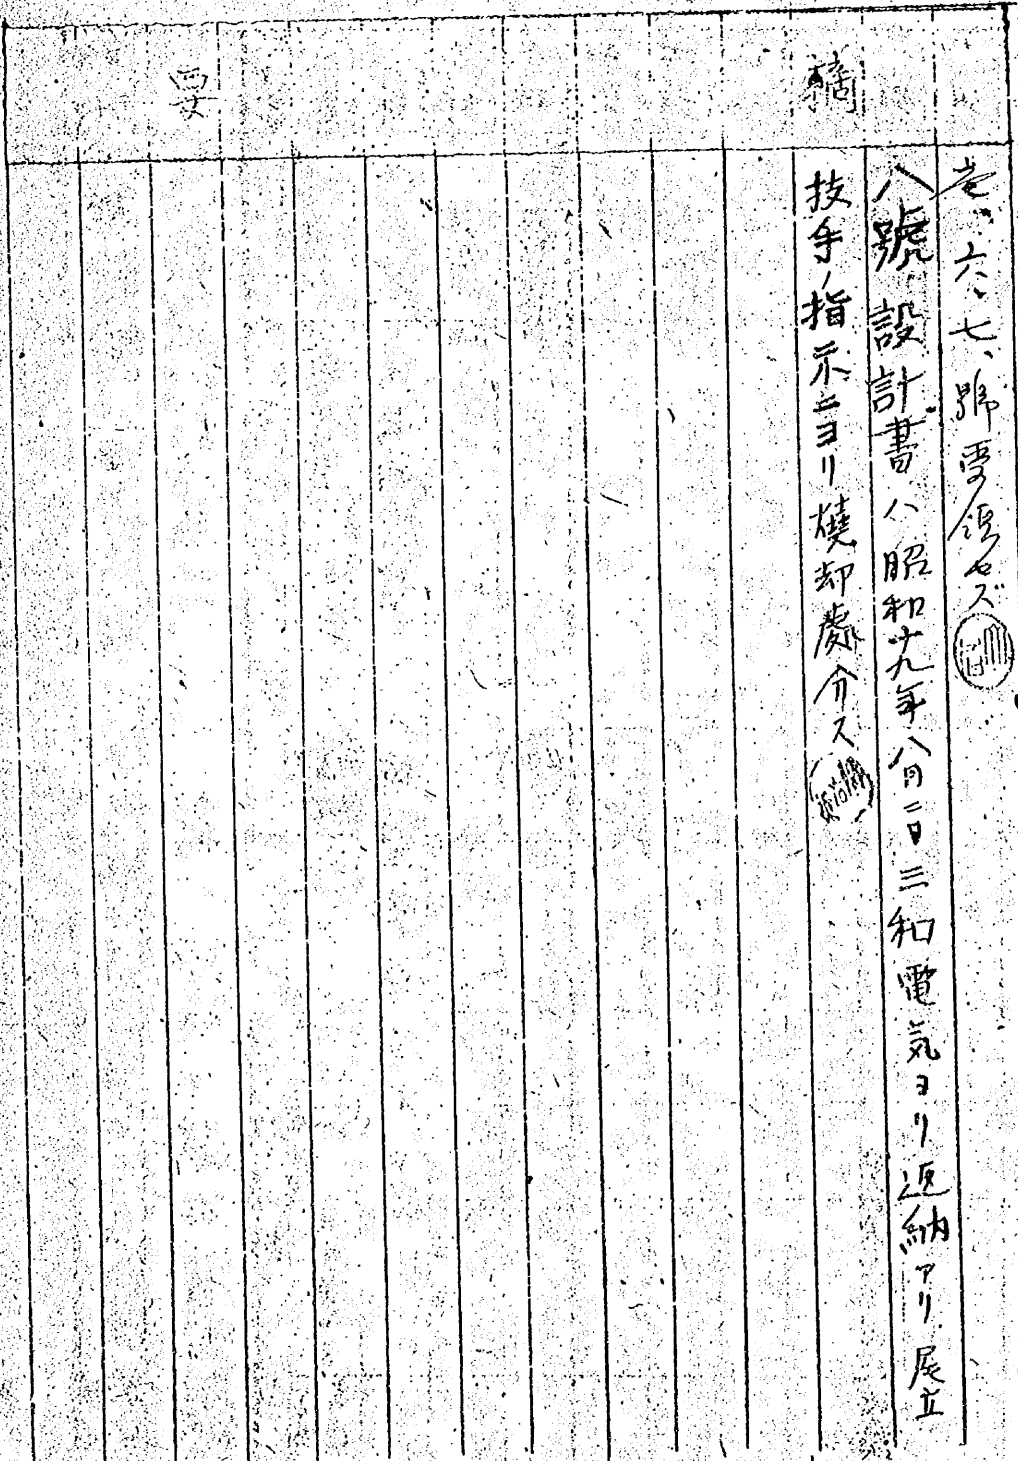 摘要
壱、六、七、號受領セズ
八號設計書ハ昭和十九年八月二日三和電気ヨリ返納アリ尾立
技手ノ指示ニヨリ燒却處分ス